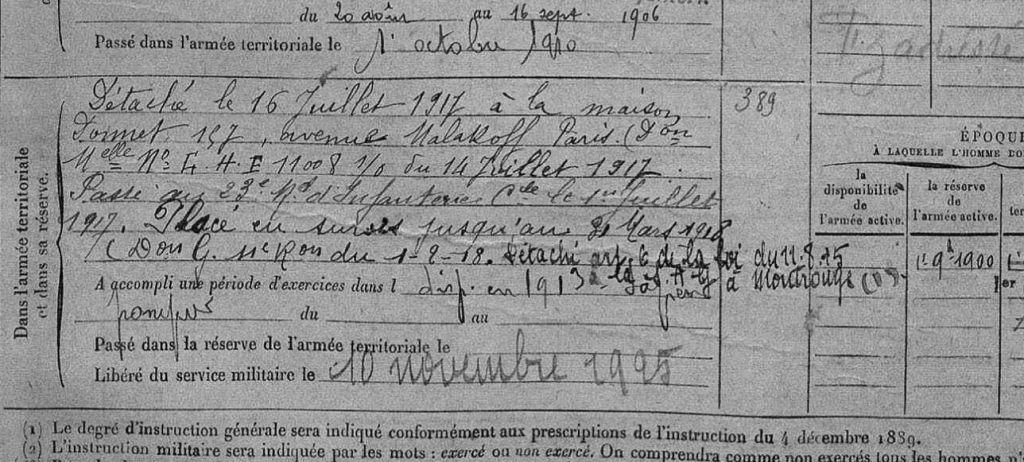 du 20 août au 16 sept. 1906
Passé dans l'armée territoriale le 1er octobre 1910
Détaché le 16 Juillet 1917 à la maison
Donnet 157, avenue Malakoff Paris. (Don
Melle No E. H. E 11008 1/0 du 14 Juillet 1917.
Passé au 23e Rt d'Infanterie Cle le 1er Juillet
1917. Placé en sursis jusqu'au 31 Mars 1918
(Don G. du 1-2-18. Détaché art. 6 de la loi du 11.8.15
à Montrouge
A accompli une période d'exercices dans l disp. en 1913
pompier du au
Passé dans la réserve de l'armée territoriale le
Libéré du service militaire le 10 novembre 1925
Dans l'armée territoriale
et dans sa réserve.
389
ÉPOQUE
À LAQUELLE L'HOMME DO
la
disponibilité
de
l'armée active.
la réserve
de
l'armée active.
ter
1er 9bre 1900
1er
(1) Le degré d'instruction générale sera indiqué conformément aux prescriptions de l'instruction du 4 décembre 1889.
(2) L'instruction militaire sera indiquée par les mots : exercé ou non exercé. On comprendra comme non exercés tous les hommes n'